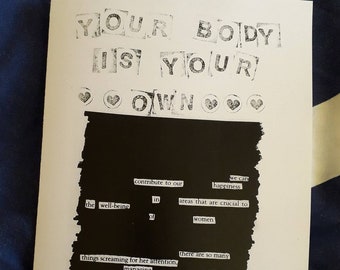 YOUR BODY
IS YOUR
OWN
we can
contribute to our happiness
in areas that are crucial to
the well-being
of women.
there are so many
things screaming for her attention,
managing